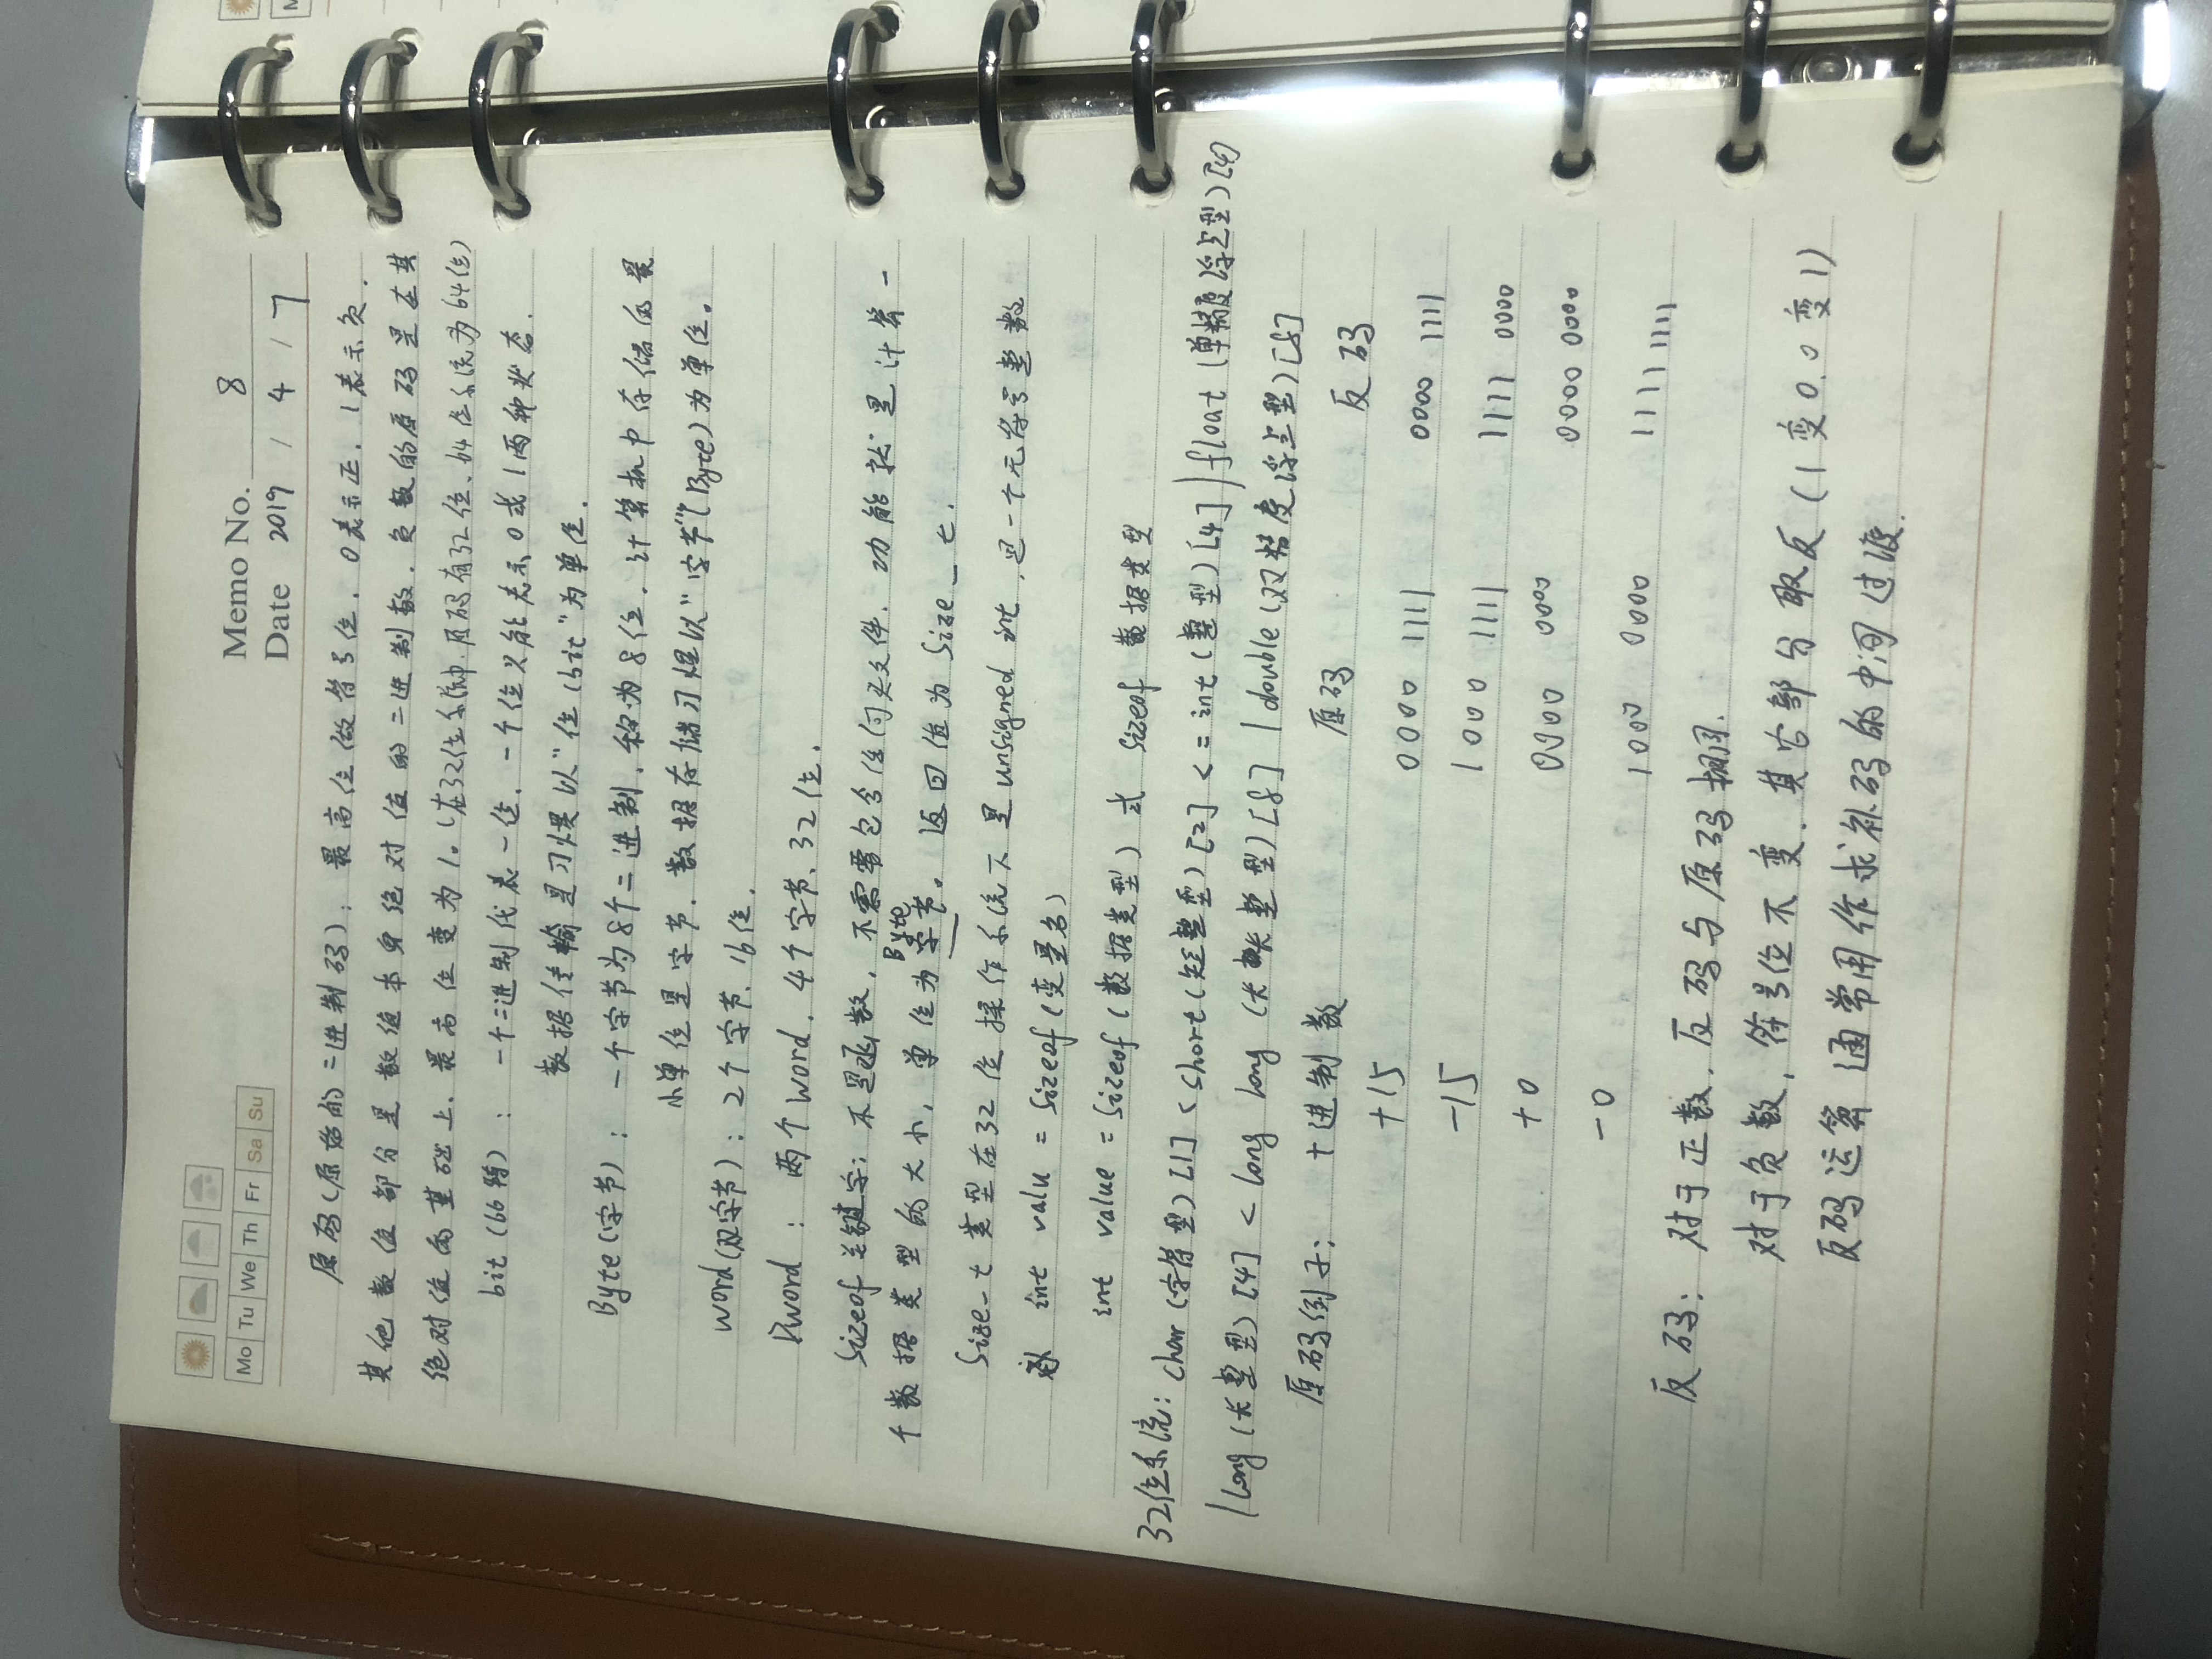 Memo No. 8
Mo Tu We Th Fr Sa Su
Date 2019 / 4 / 7
原码(原始的二进制码): 最高位做符号位, 0表示正, 1表示负.
其他数值部分是数值本身绝对值的二进制数, 负数的原码是在其
绝对值的基础上, 最高位变为1。(在32位系统中原码有32位、64位系统为64位)
bit(比特): 一个二进制代表一位, 一个位只能表示0或1两种状态.
数据传输是习惯以"位(bit)"为单位.
Byte(字节): 一个字节为8个二进制, 称为8位, 计算机中存储的最
小单位是字节, 数据存储习惯以"字节"(Byte)为单位。
word(双字节): 2个字节、16位.
Dword: 两个word, 4个字节、32位.
sizeof关键字: 不是函数, 不需要包含任何头文件. 功能就是计算一
Byte
个数据类型的大小, 单位为字节。返回值为size_t.
size_t类型在32位操作系统下是unsigned int, 是一个无符号整数
int valu = sizeof(变量名)
int value = sizeof(数据类型) 或 sizeof 数据类型
32位系统: char(字符型)[1] < short(短整型)[2] <= int(整型)[4] | float(单精度浮点型)[4]
| long(长整型)[4] < long long (长长整型)[8] | double(双精度浮点型)[8]
原码例子: 十进制数 原码 反码
+15 0000 1111 0000 1111
-15 1000 1111 1111 0000
+0 0000 0000 0000 0000
-0 1000 0000 1111 1111
反码: 对于正数, 反码与原码相同.
对于负数, 符号位不变. 其它部分取反(1变0.0变1)
反码运算通常用作求补码的中间过渡.